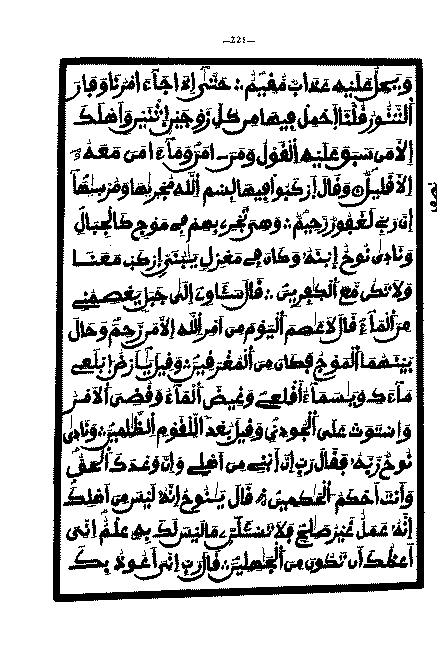 —221—
وَيَحِلُّ عَلَيْهِ عَذَابٌ مُّقِيمٌ ∴ حَتَّىٰ إِذَا جَآءَ امْرُنَا وَفَارَ
اَلتَّنُّورُ قُلْنَا اَحْمِلْ فِيهَا مِن كُلِّ زَوْجَيْنِ اِثْنَيْنِ وَأَهْلَكَ
إِلَّا مَن سَبَقَ عَلَيْهِ اِلْقَوْلُ وَمَنَ _ امَنَ وَمَآ ءَامَنَ مَعَهُۥ
إِلَّا قَلِيلٌ وَقَالَ اَرْكَبُوا فِيهَا بِسْمِ اِللَّهِ مُجْرَىٰهَا وَمُرْسَىٰهَآ
إِنَّ رَبِّي لَغَفُورٌ رَّحِيمٌ ∴ وَهِيَ تَجْرِي بِهِمْ فِي مَوْجٍ كَالْجِبَالِ
وَنَادَىٰ نُوحٌ اِبْنَهُۥ وَكَانَ فِي مَعْزِلٍ يَٰبُنَيِّ اِرْكَب مَّعَنَا
وَلَا تَكُن مَّعَ اَلْكَٰفِرِينَ ∴ قَالَ سَـَٔاوِي إِلَىٰ جَبَلٍ يَعْصِمُنِي
مِنَ اَلْمَآءِ قَالَ لَا عَاصِمَ اَلْيَوْمَ مِنَ اَمْرِ اِللَّهِ إِلَّا مَن رَّحِمَ وَحَالَ
بَيْنَهُمَا اَلْمَوْجُ فَكَانَ مِنَ اَلْمُغْرَقِينَ ∴ وَقِيلَ يَٰأَرْضُ اُبْلَعِي
مَآءَكِ وَيَٰسَمَآءُ اَقْلِعِي وَغِيضَ اَلْمَآءُ وَقُضِيَ اَلَامْرُ
وَاسْتَوَتْ عَلَى اَلْجُودِيِّ وَقِيلَ بُعْدًا لِّلْقَوْمِ اِلظَّٰلِمِينَ ∴ وَنَادَىٰ
نُوحٌ رَّبَّهُۥ فَقَالَ رَبِّ إِنَّ اَبْنِي مِنَ اَهْلِي وَإِنَّ وَعْدَكَ اَلْحَقُّ
وَأَنتَ أَحْكَمُ اُلْحَٰكِمِينَ ∴ قَالَ يَٰنُوحُ إِنَّهُۥ لَيْسَ مِنَ اَهْلِكَ
إِنَّهُۥ عَمَلٌ غَيْرُ صَٰلِحٍ فَلَا تَسْـَٔلَنِّ مَا لَيْسَ لَكَ بِهِۦ عِلْمٌ اِنِّيَ
أَعِظُكَ أَن تَكُونَ مِنَ اَلْجَٰهِلِينَ ∴ قَالَ رَبِّ إِنِّيَ أَعُوذُ بِكَ